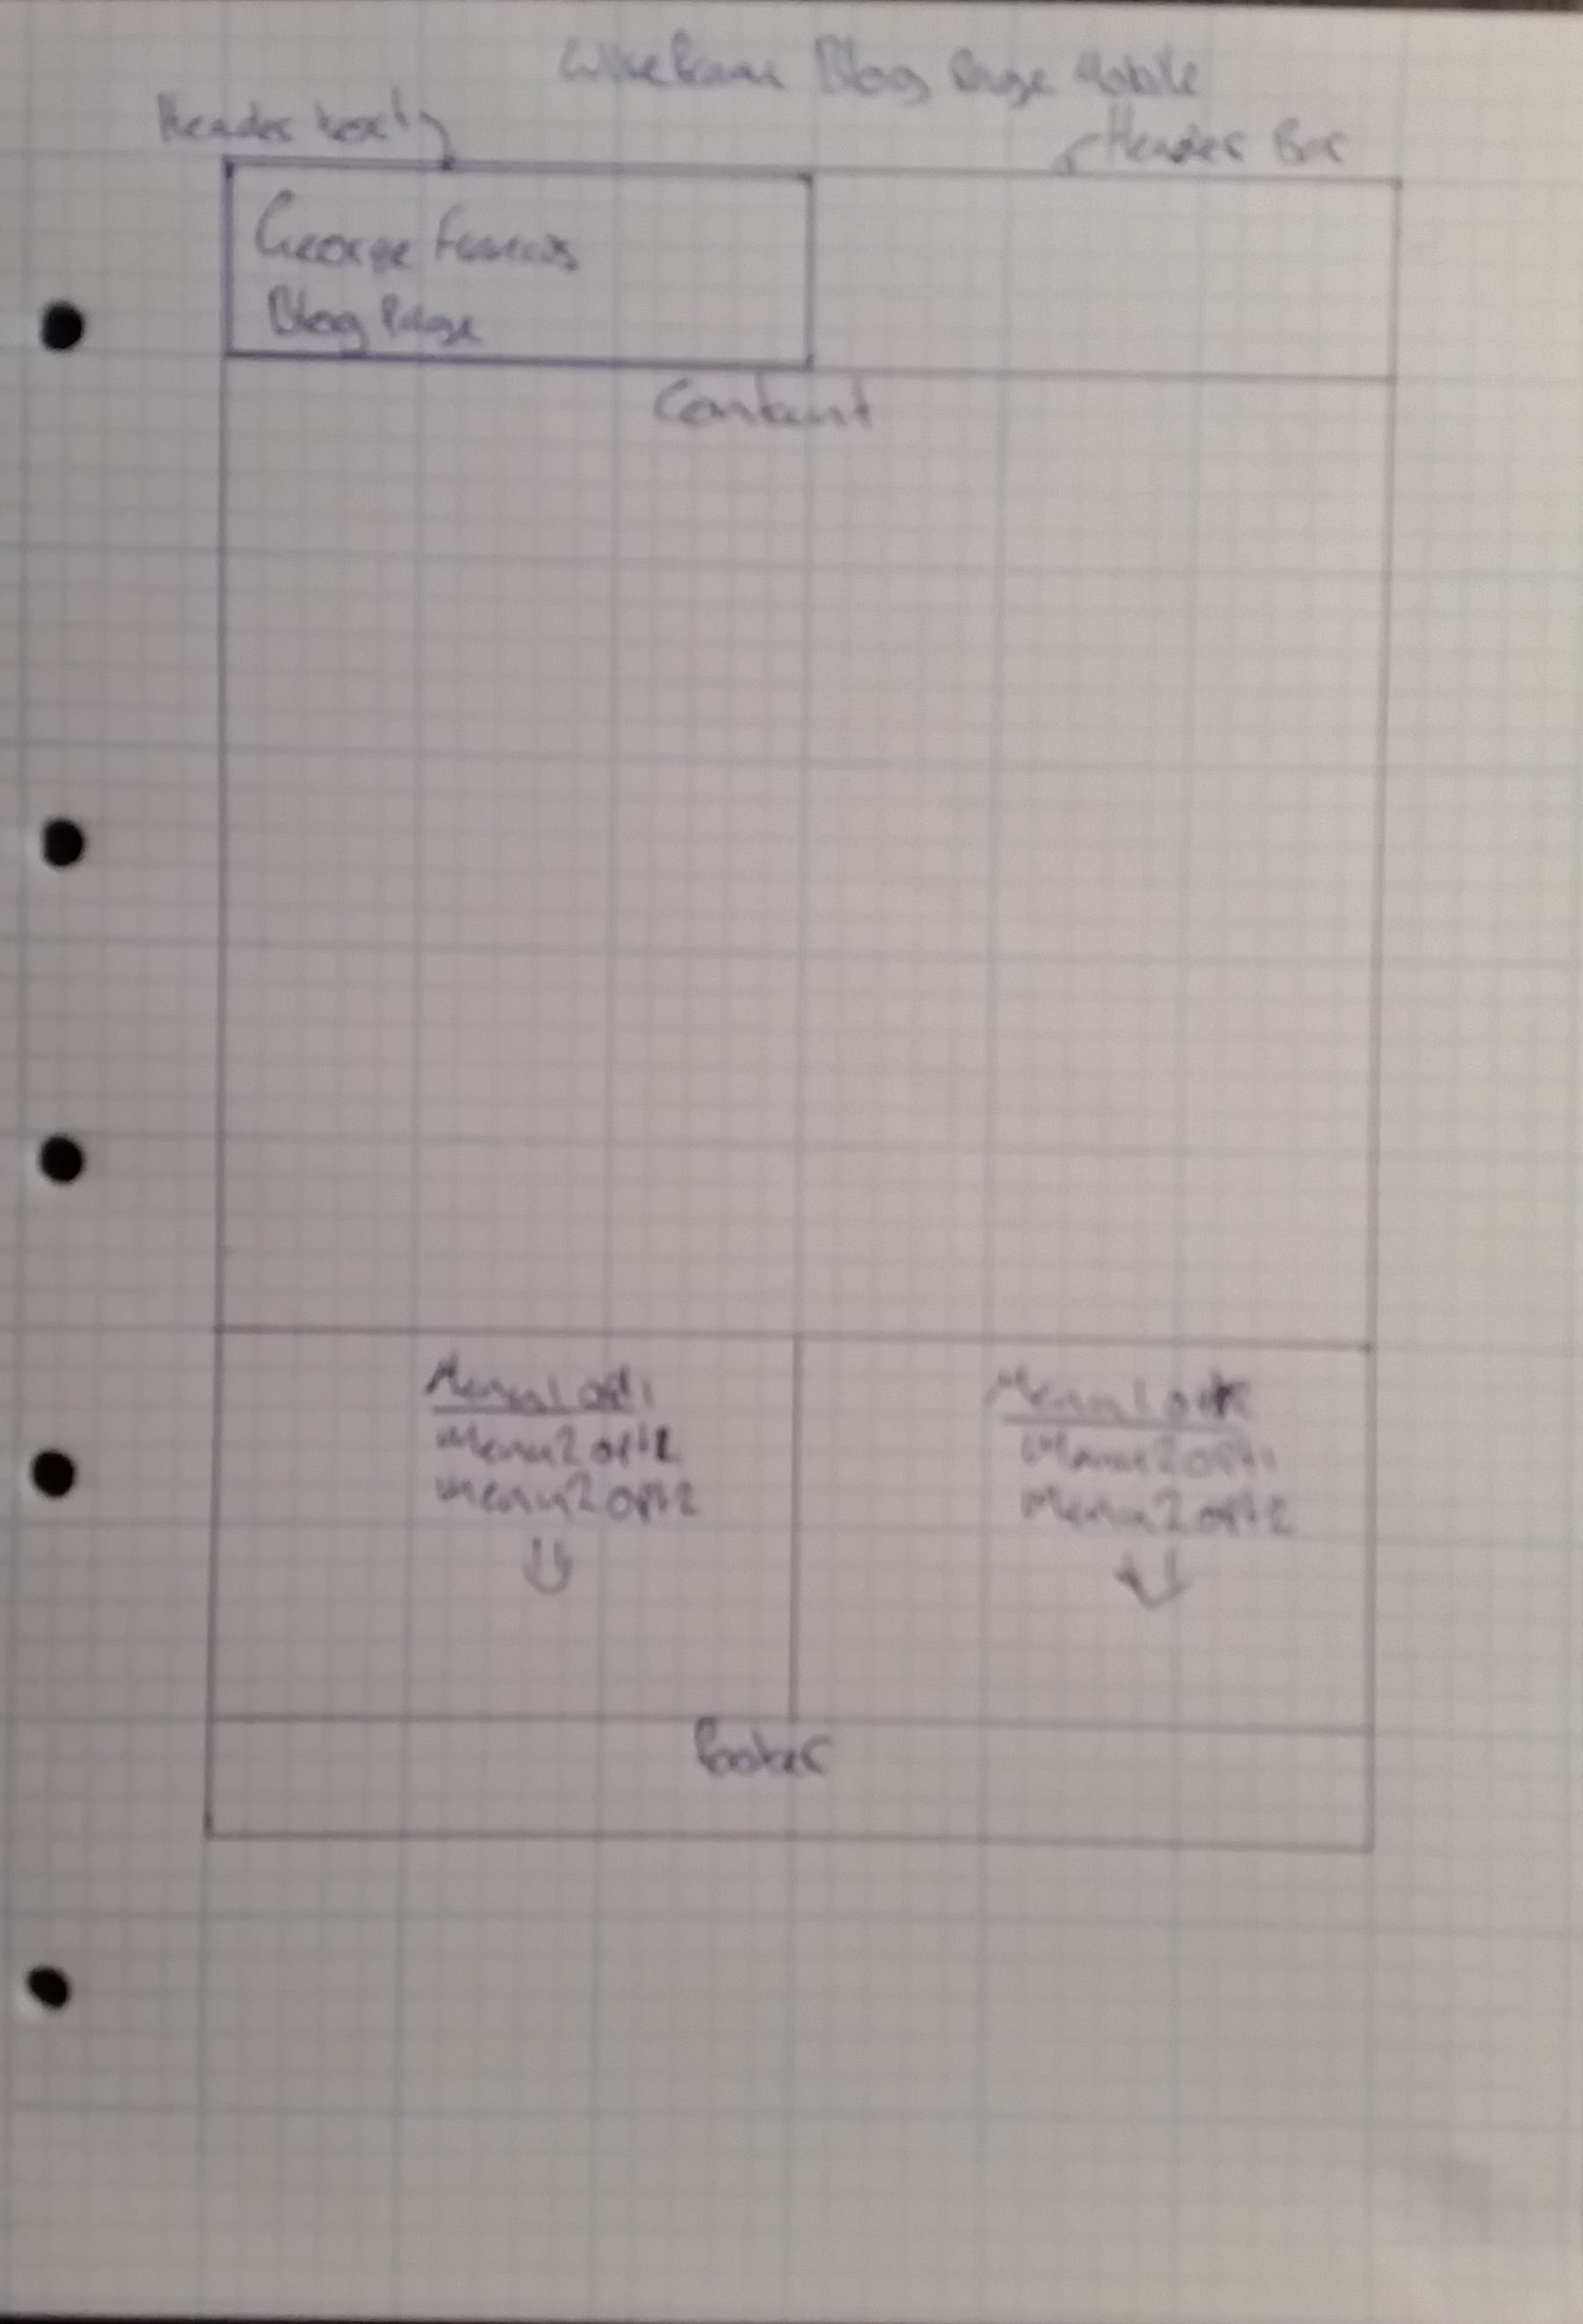 Wireframe Blog Page Mobile
Header box
Header Bar
George Francis
Blog Page
Content
Menu1 opt1
Menu2 opt2
Menu2 opt2
Menu1 opt2
Menu2 opt1
Menu2 opt2
Footer